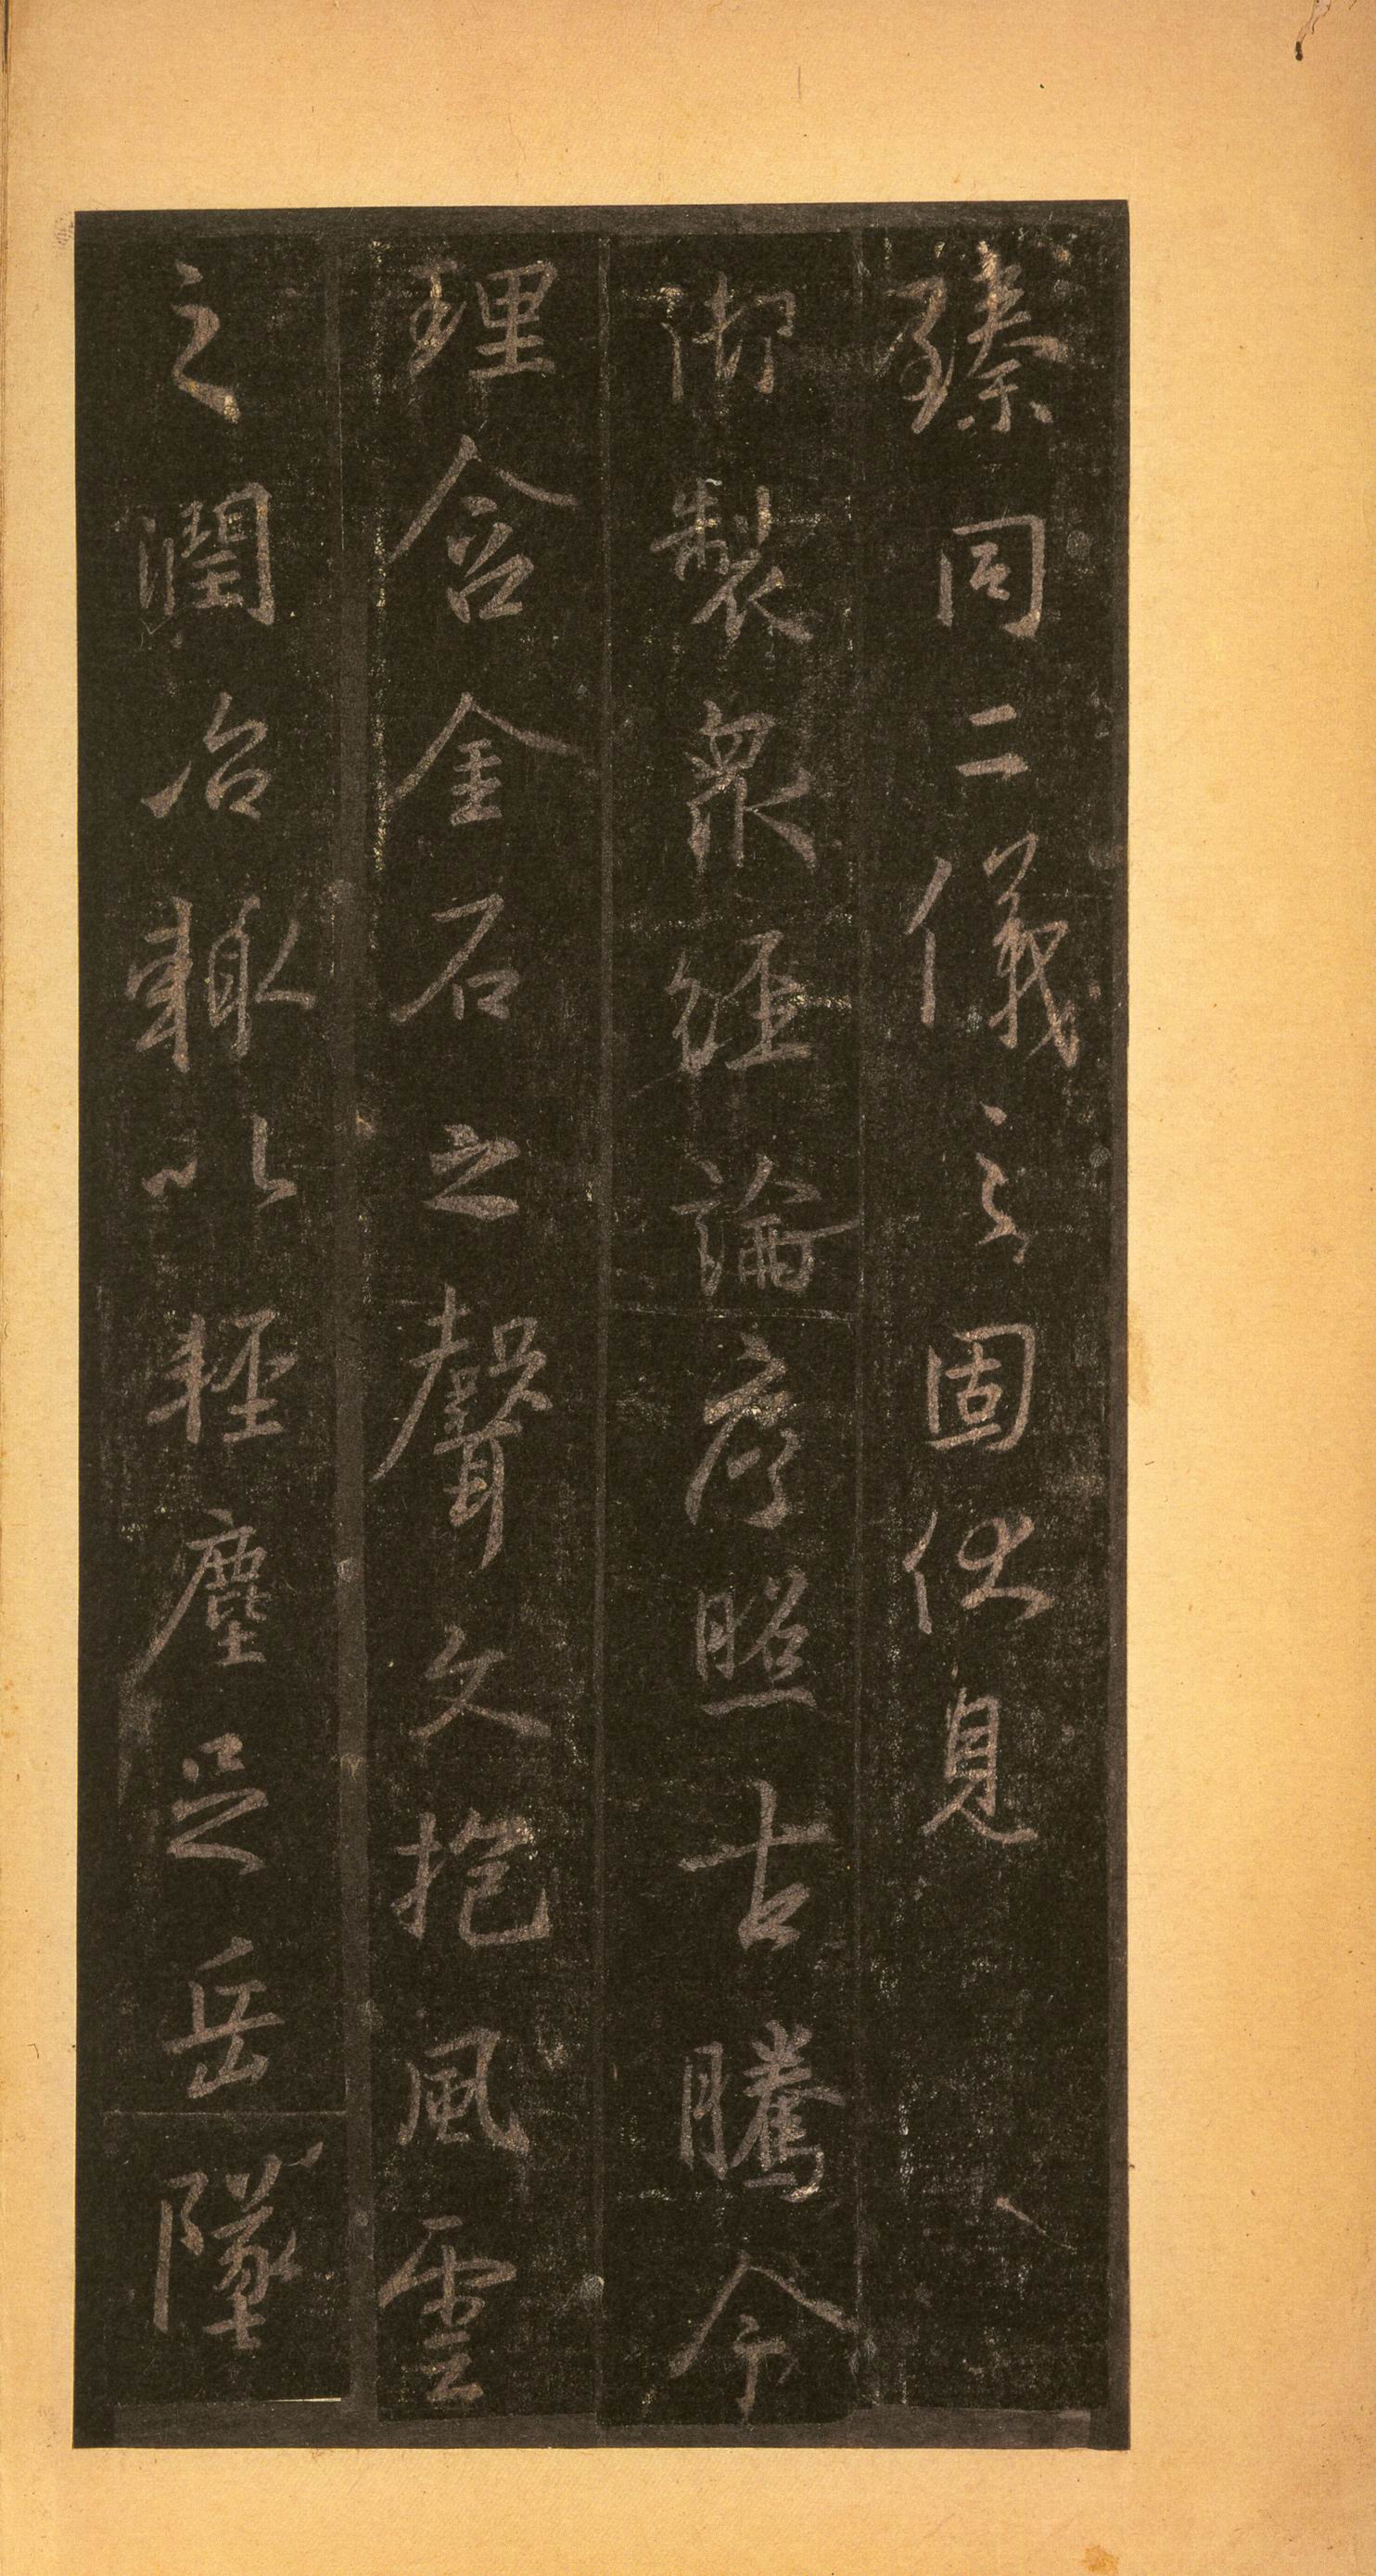 臻同二儀之固伏見
御製衆經論序照古騰今
理含金石之聲文抱風雲
之潤治輒以輕塵足岳墜